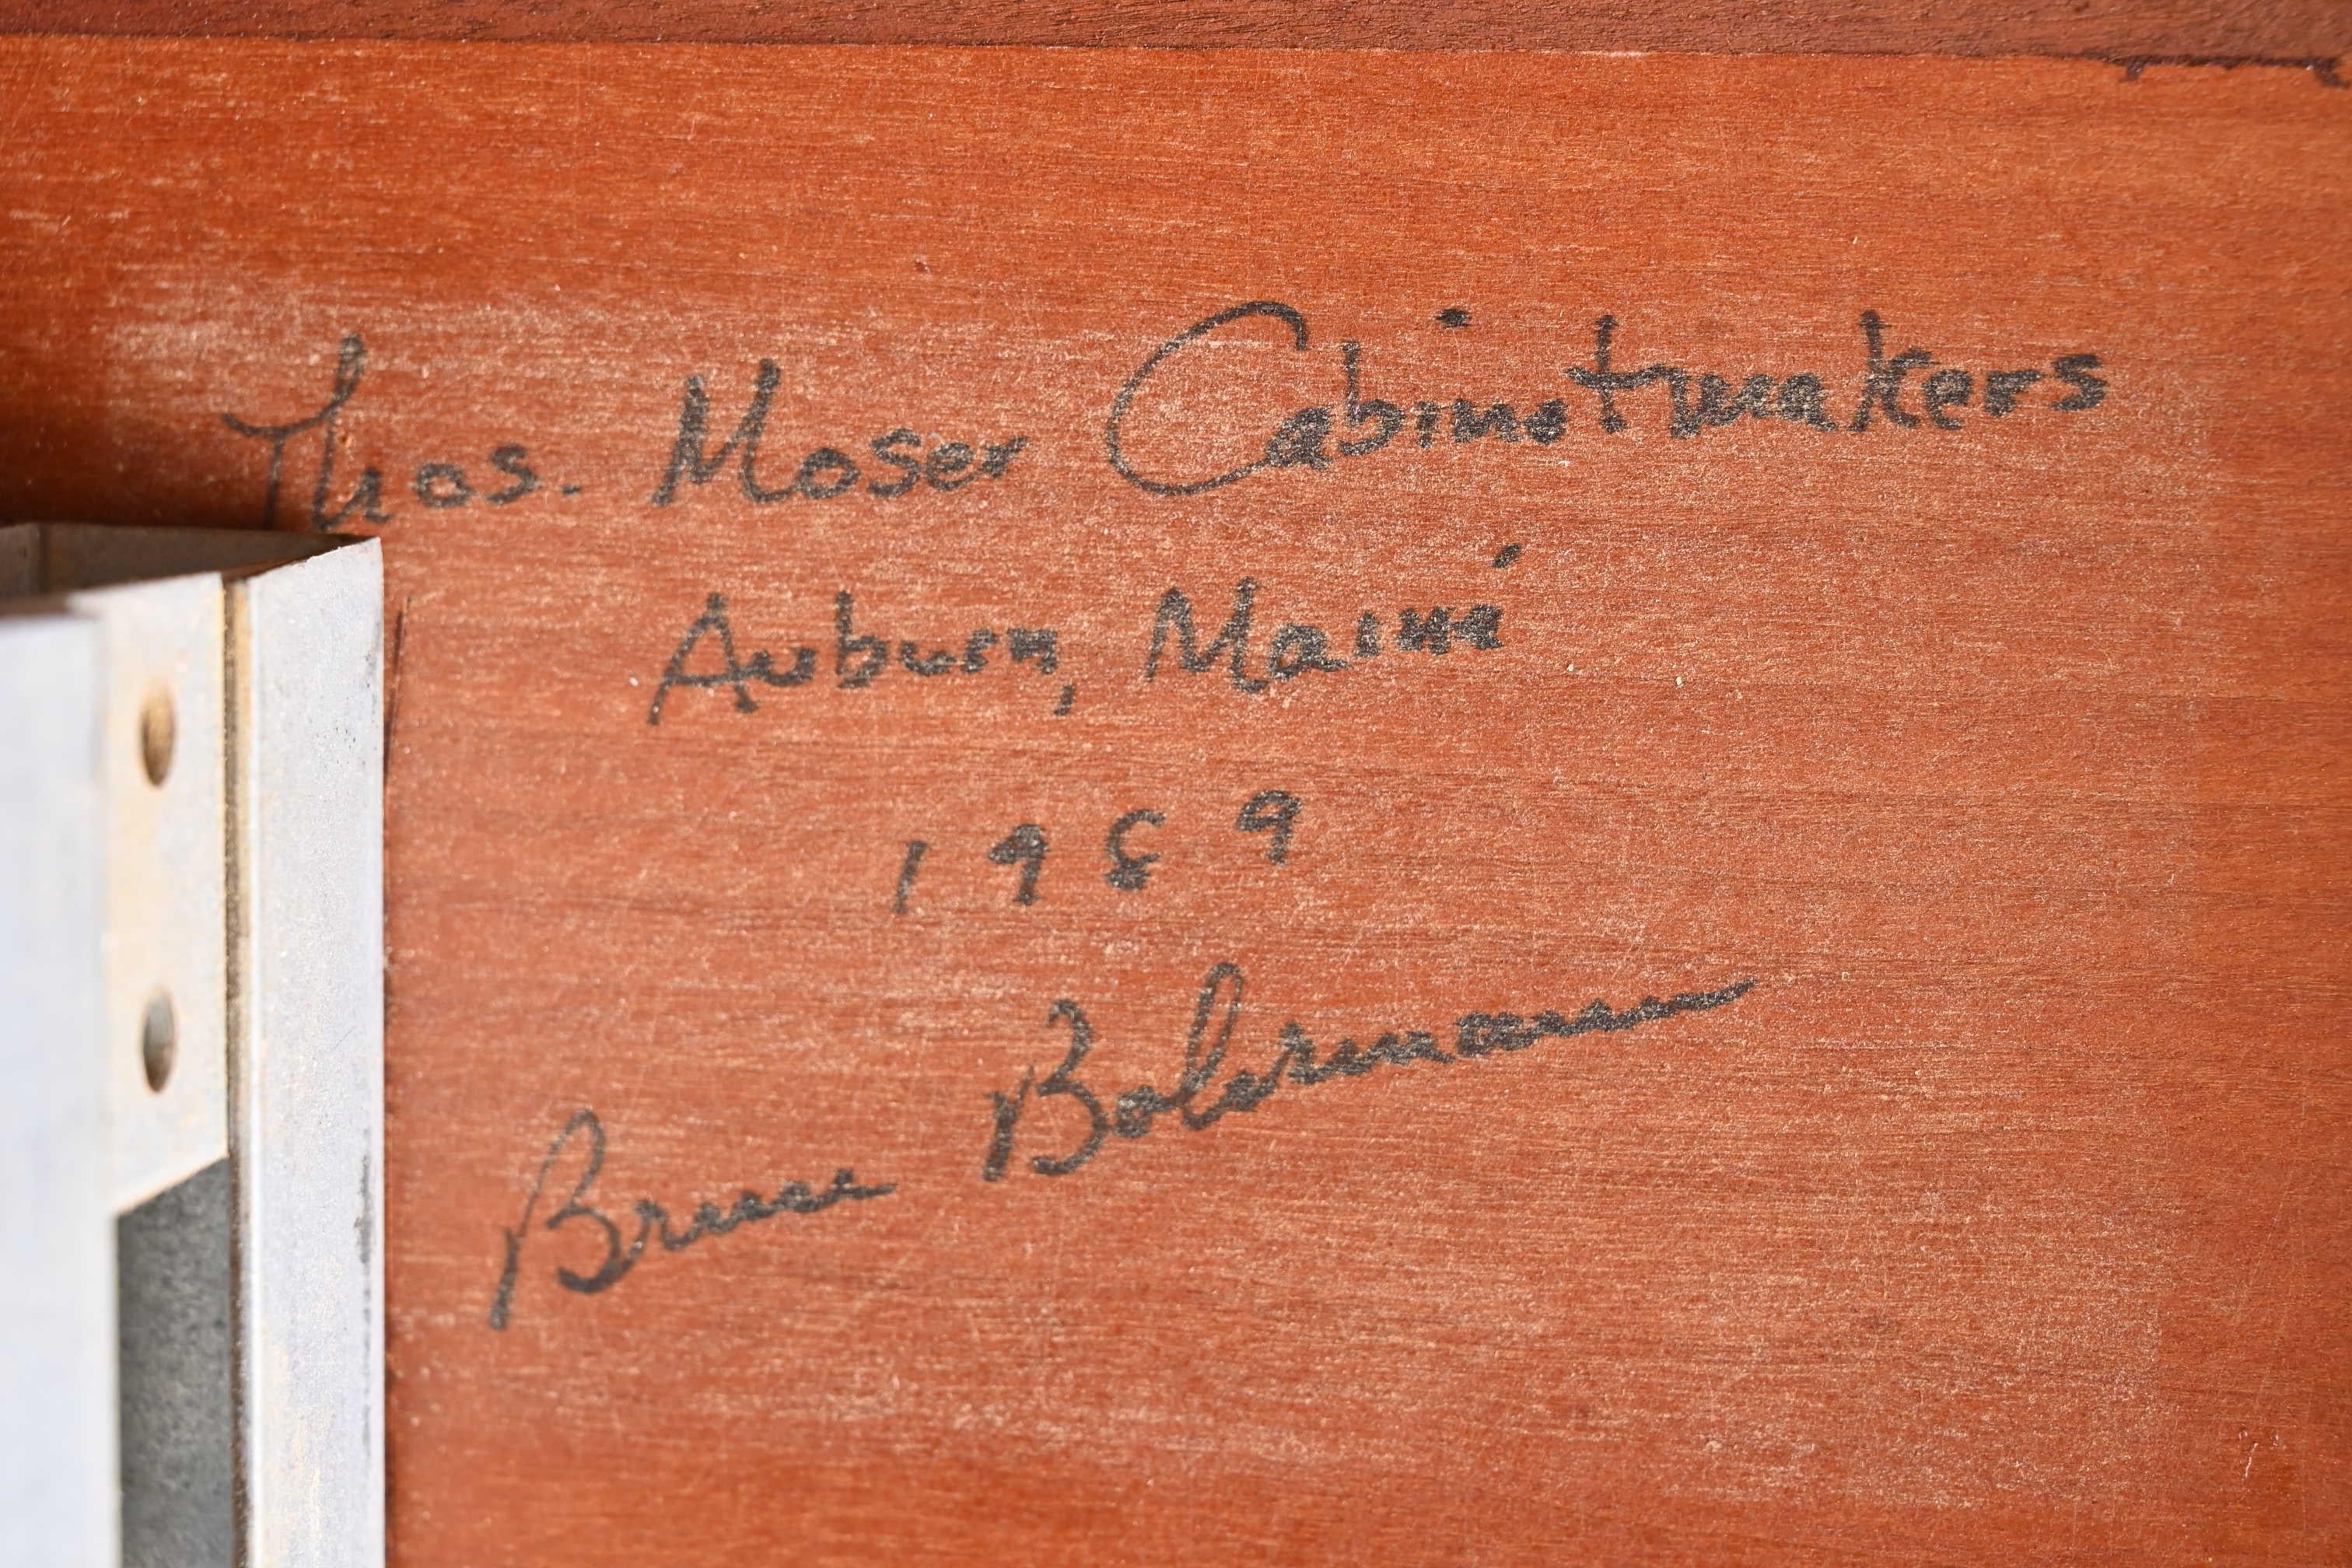 Thos. Moser Cabinetmakers
Auburn, Maine
1989
Bruce